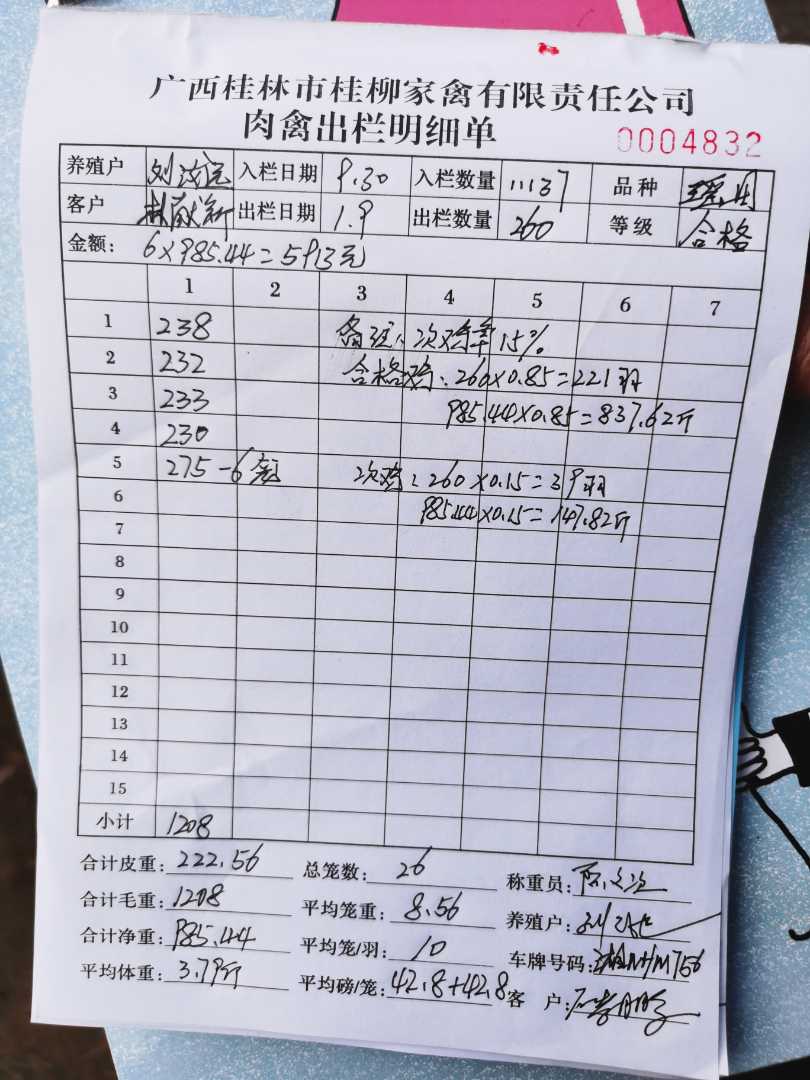 广西桂林市桂柳家禽有限责任公司
肉禽出栏明细单 0004832
养殖户 入栏日期 9.30 入栏数量 11137 品种 瑶用
客户 出栏日期 1.9 出栏数量 260 等级 合格
金额: 6×985.44=5913元
1 2 3 4 5 6 7
1 238 备注:次鸡率15%
2 232 合格鸡:260×0.85=221羽
3 233 985.44×0.85=837.62斤
4 230
5 275-6 次鸡:260×0.15=39羽
6 985.44×0.15=147.82斤
7
8
9
10
11
12
13
14
15
小计 1208
合计皮重: 222.56 总笼数: 26 称重员:
合计毛重: 1208 平均笼重: 8.56 养殖户:
合计净重: 985.44 平均笼/羽: 10 车牌号码:
平均体重: 3.79斤 平均磅/笼: 42.8+42.8 客 户: